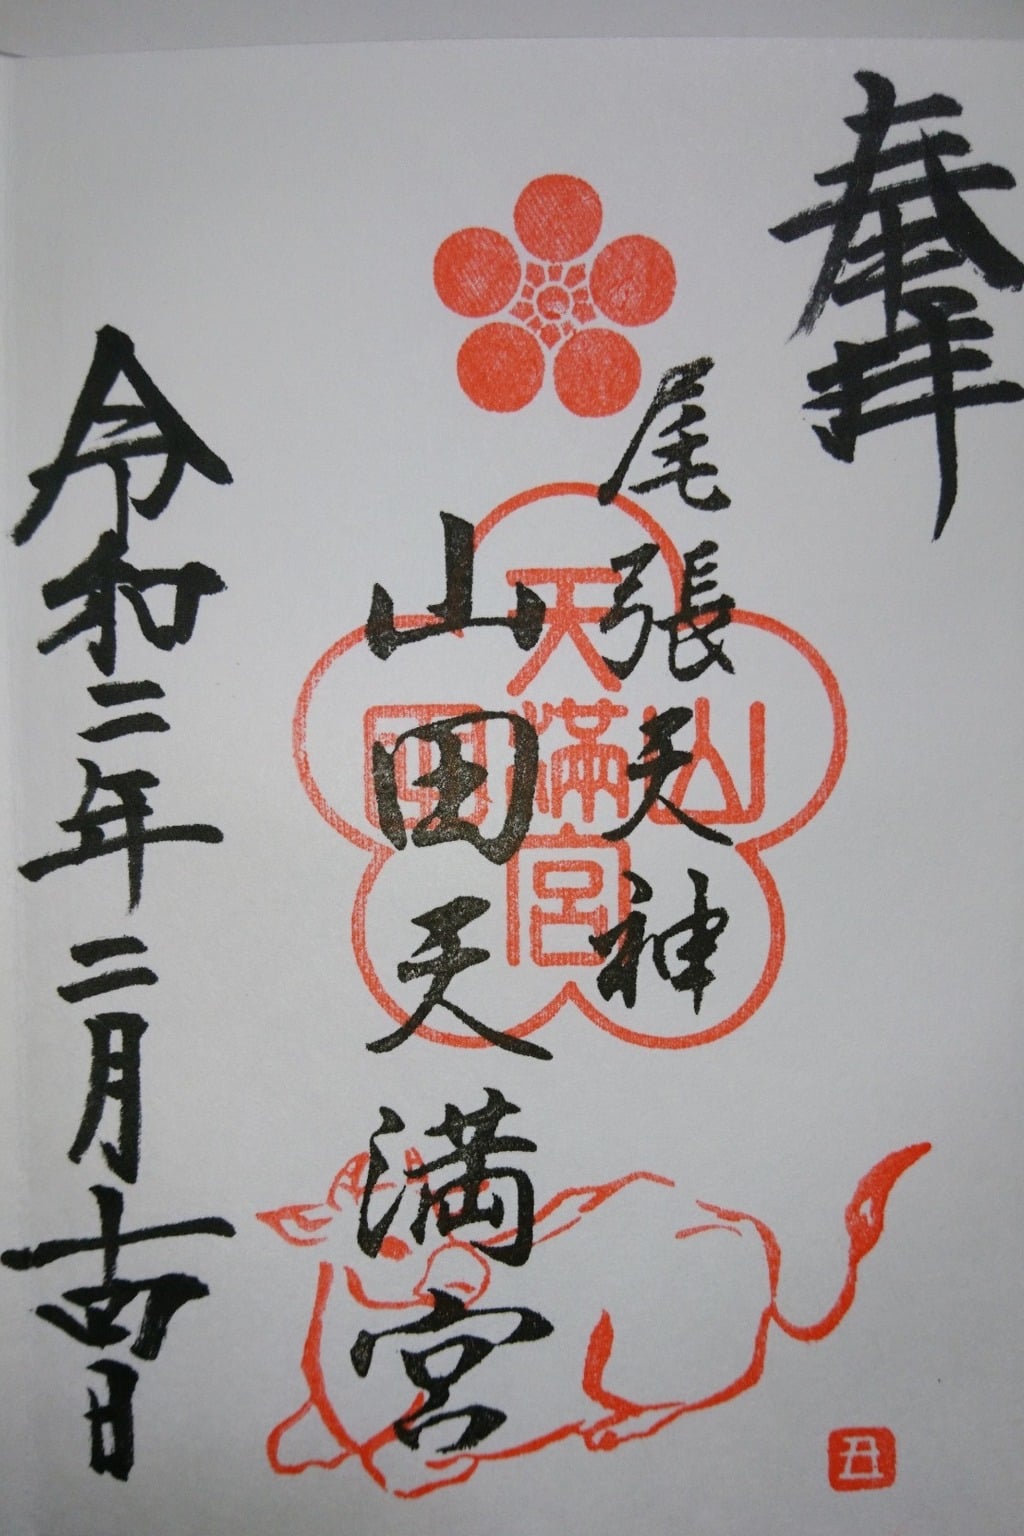 奉拝
尾張天神
山田天満宮
令和二年二月十四日
山田
天満宮
丑